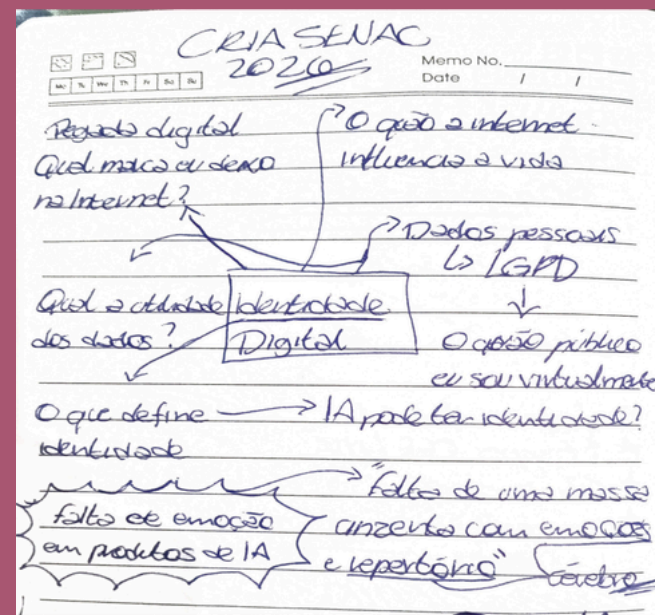 CRIA SENAC
2026
Memo No.
Date / /
Mo Tu We Th Fr Sa Su
Pegada digital
Qual marca eu deixo
na Internet?
O quão a internet
influencia a vida
Dados pessoais
↳ LGPD
O quão público
eu sou virtualmente
Identidade
Digital
Qual a utilidade
dos dados?
O que define
identidade
IA pode ter identidade?
falta de emoção
em produtos de IA
"Falta de uma massa
cinzenta com emoções
e repertório"
Cérebro